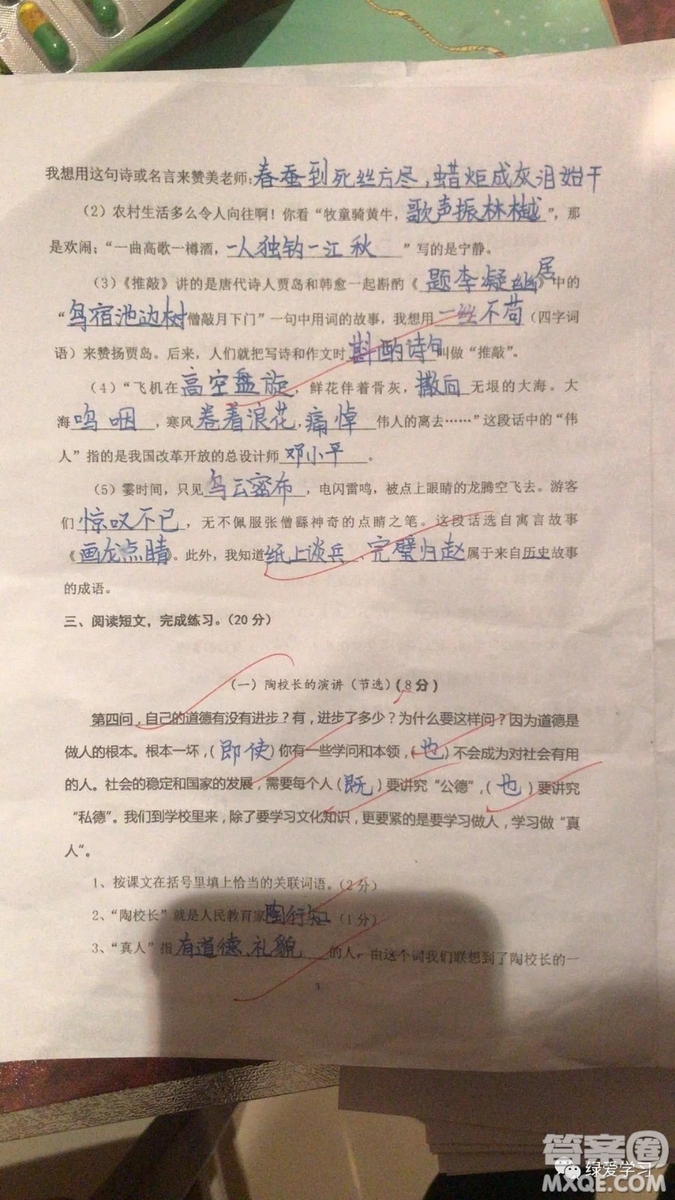 我想用这句诗或名言来赞美老师:春蚕到死丝方尽,蜡炬成灰泪始干
(2)农村生活多么令人向往啊!你看“牧童骑黄牛,歌声振林樾”,那
是欢闹;“一曲高歌一樽酒,一人独钓一江秋”写的是宁静。
(3)《推敲》讲的是唐代诗人贾岛和韩愈一起斟酌《题李凝幽居》中的
“鸟宿池边树僧敲月下门”一句中用词的故事,我想用一丝不苟(四字词
语)来赞扬贾岛。后来,人们就把写诗和作文时斟酌诗句叫做“推敲”。
(4)“飞机在高空盘旋,鲜花伴着骨灰,撒向无垠的大海。大
海呜咽,寒风卷着浪花,痛悼伟人的离去……”这段话中的“伟
人”指的是我国改革开放的总设计师邓小平。
(5)霎时间,只见乌云密布,电闪雷鸣,被点上眼睛的龙腾空飞去。游客
们惊叹不已,无不佩服张僧繇神奇的点睛之笔。这段话选自寓言故事
《画龙点睛》。此外,我知道纸上谈兵、完璧归赵属于来自历史故事
的成语。
三、阅读短文,完成练习。(20分)
(一)陶校长的演讲(节选)(8分)
第四问,自己的道德有没有进步?有,进步了多少?为什么要这样问?因为道德是
做人的根本。根本一坏,(即使)你有一些学问和本领,(也)不会成为对社会有用
的人。社会的稳定和国家的发展,需要每个人(既)要讲究“公德”,(也)要讲究
“私德”。我们到学校里来,除了要学习文化知识,更要紧的是要学习做人,学习做“真
人”。
1、按课文在括号里填上恰当的关联词语。(2分)
2、“陶校长”就是人民教育家陶行知(1分)
3、“真人”指有道德、礼貌的人,由这个词我们联想到了陶校长的一
3
答案圈
绿爱学习
MXQE.COM